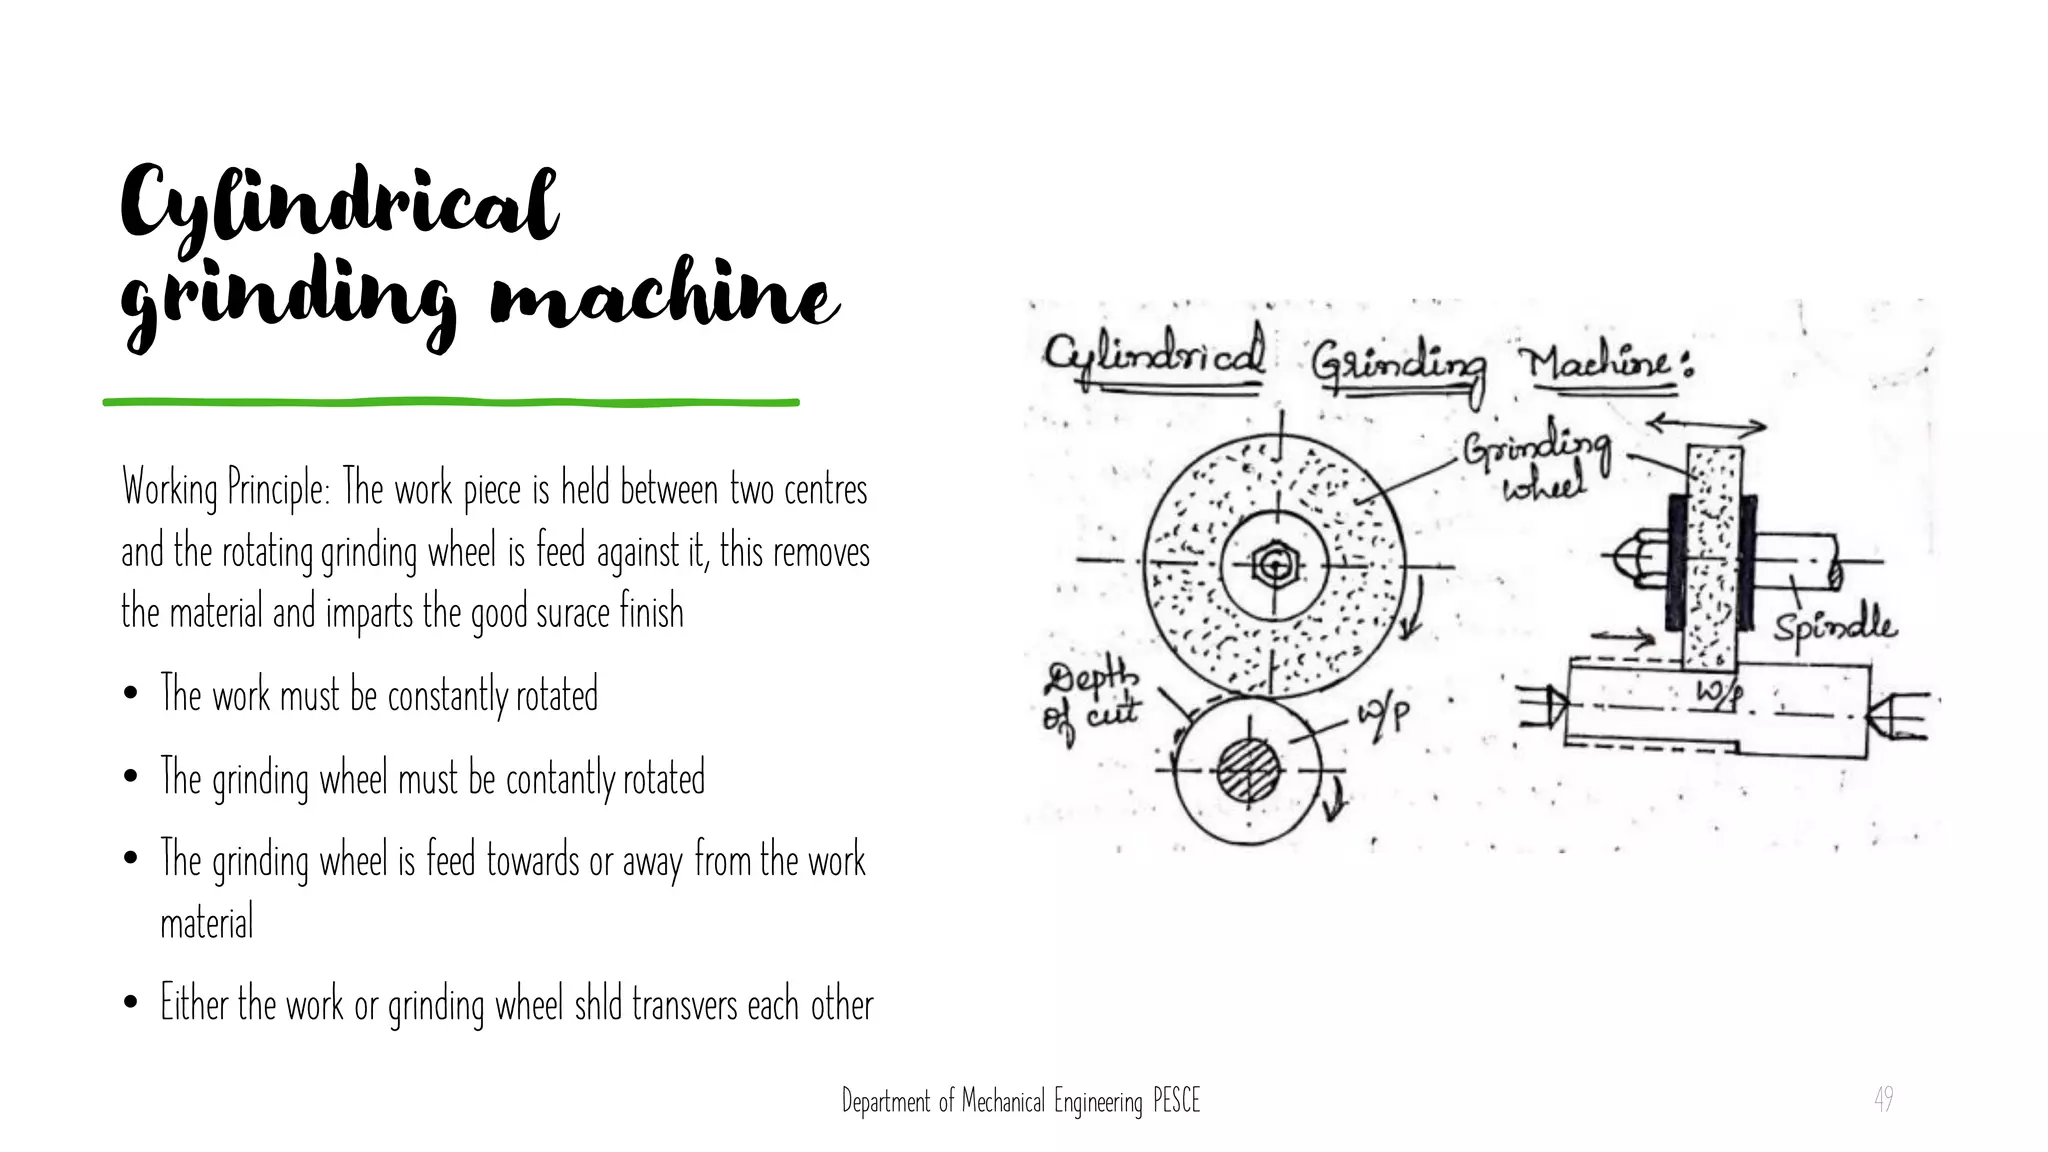 Cylindrical
grinding machine
Working Principle: The work piece is held between two centres
and the rotating grinding wheel is feed against it, this removes
the material and imparts the good surace finish
• The work must be constantly rotated
• The grinding wheel must be contantly rotated
• The grinding wheel is feed towards or away from the work
material
• Either the work or grinding wheel shld transvers each other
Cylindrical Grinding Machine:
Grinding
wheel
Spindle
Depth
of cut
w/p
w/p
Department of Mechanical Engineering PESCE
49